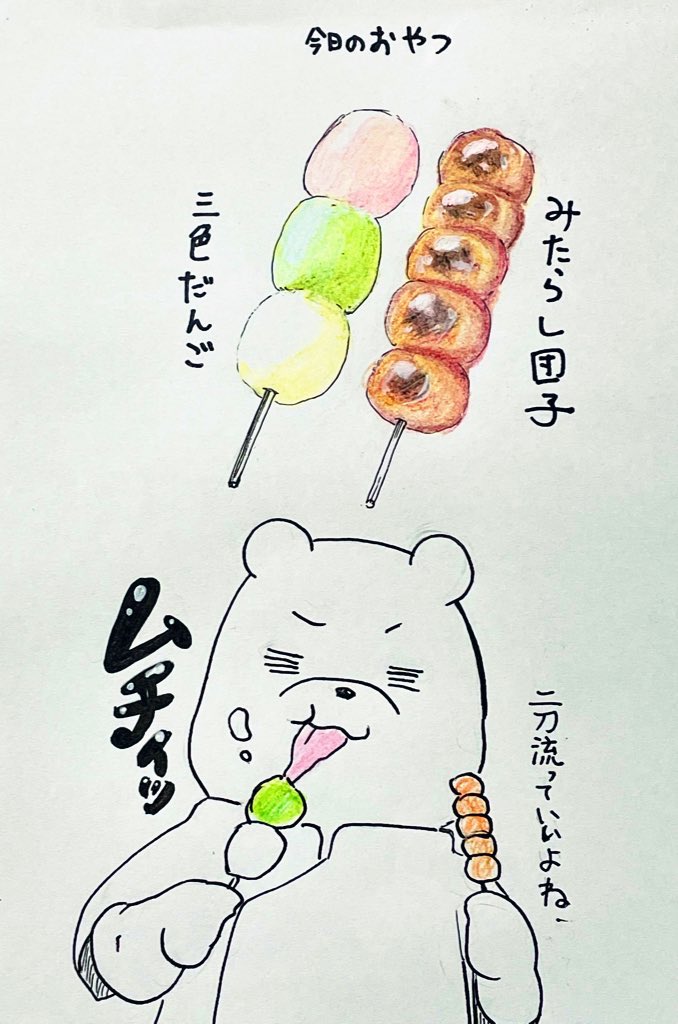 今日のおやつ
みたらし団子
三色だんご
ムチィッ
二刀流っていいよね、